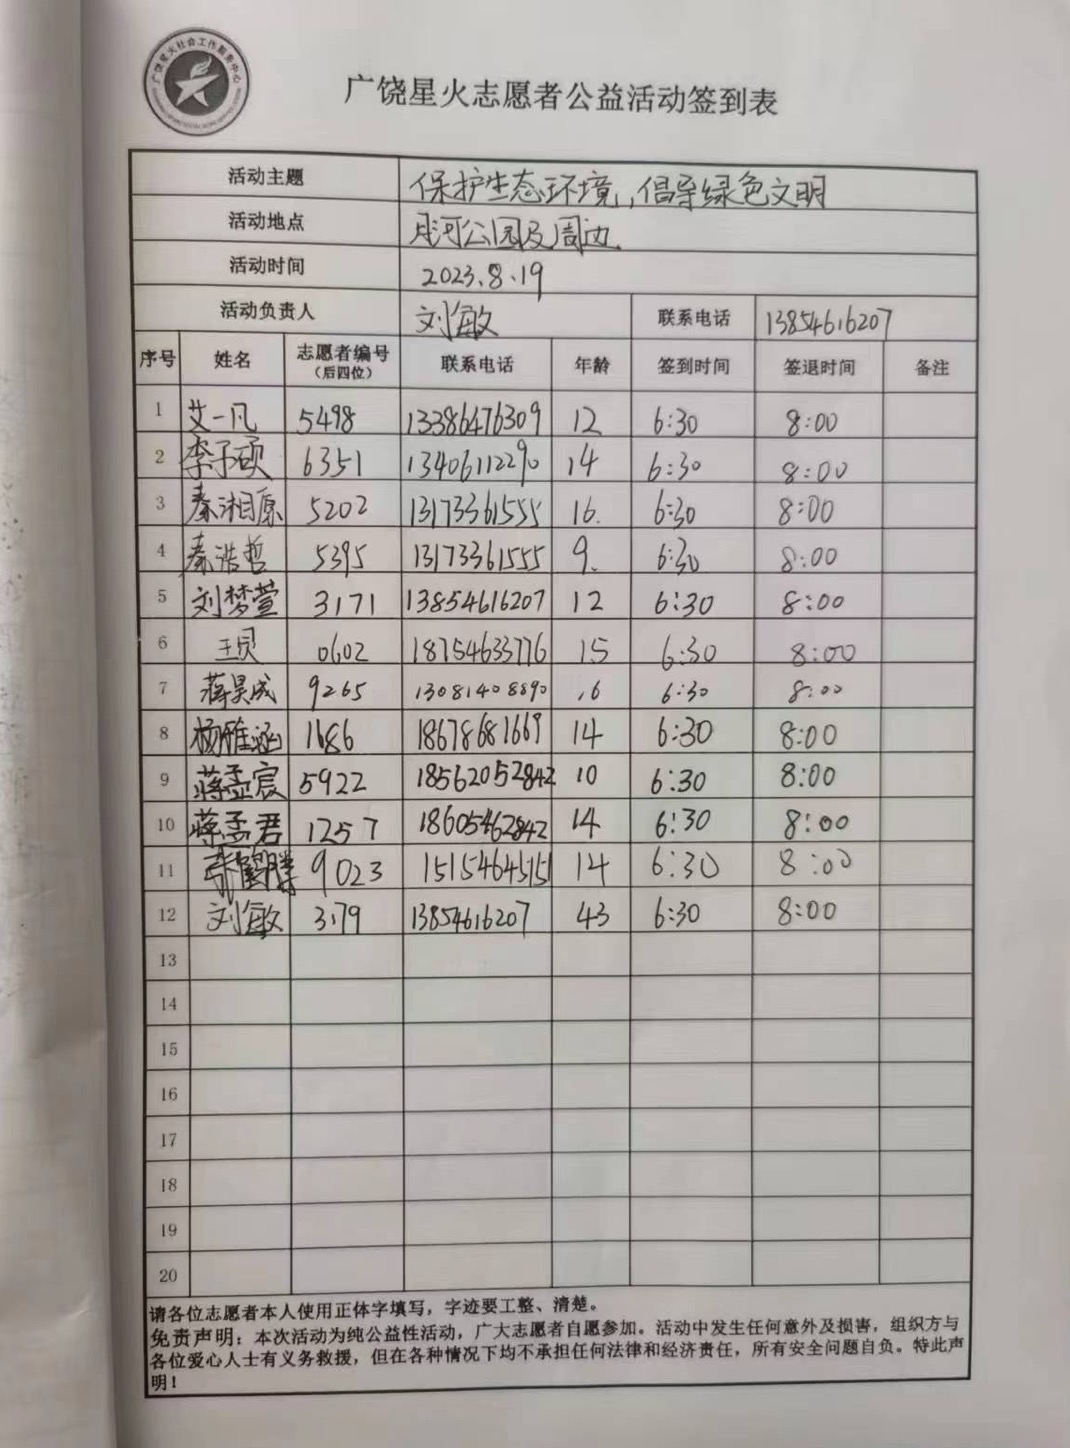 广饶星火社会工作服务中心
广饶星火志愿者公益活动签到表
活动主题 保护生态环境,倡导绿色文明
活动地点 月河公园及周边
活动时间 2023.8.19
活动负责人 刘敏 联系电话 13854616207
序号 姓名 志愿者编号(后四位) 联系电话 年龄 签到时间 签退时间 备注
1 艾一凡 5498 13386476309 12 6:30 8:00
2 李子硕 6351 13406112290 14 6:30 8:00
3 秦湘愿 5202 13173361555 16. 6:30 8:00
4 秦浩哲 5395 13173361555 9. 6:30 8:00
5 刘梦萱 3171 13854616207 12 6:30 8:00
6 王贝 0602 18754633776 15 6:30 8:00
7 蒋昊成 9265 13081408890 16 6:30 8:00
8 杨雅涵 1686 18678681669 14 6:30 8:00
9 蒋孟宸 5922 18562052842 10 6:30 8:00
10 蒋孟君 1257 18605462842 14 6:30 8:00
11 9023 15154645151 14 6:30 8:00
12 刘敏 3179 13854616207 43 6:30 8:00
13
14
15
16
17
18
19
20
请各位志愿者本人使用正体字填写,字迹要工整、清楚。
免责声明:本次活动为纯公益性活动,广大志愿者自愿参加。活动中发生任何意外及损害,组织方与
各位爱心人士有义务救援,但在各种情况下均不承担任何法律和经济责任,所有安全问题自负。特此声
明!